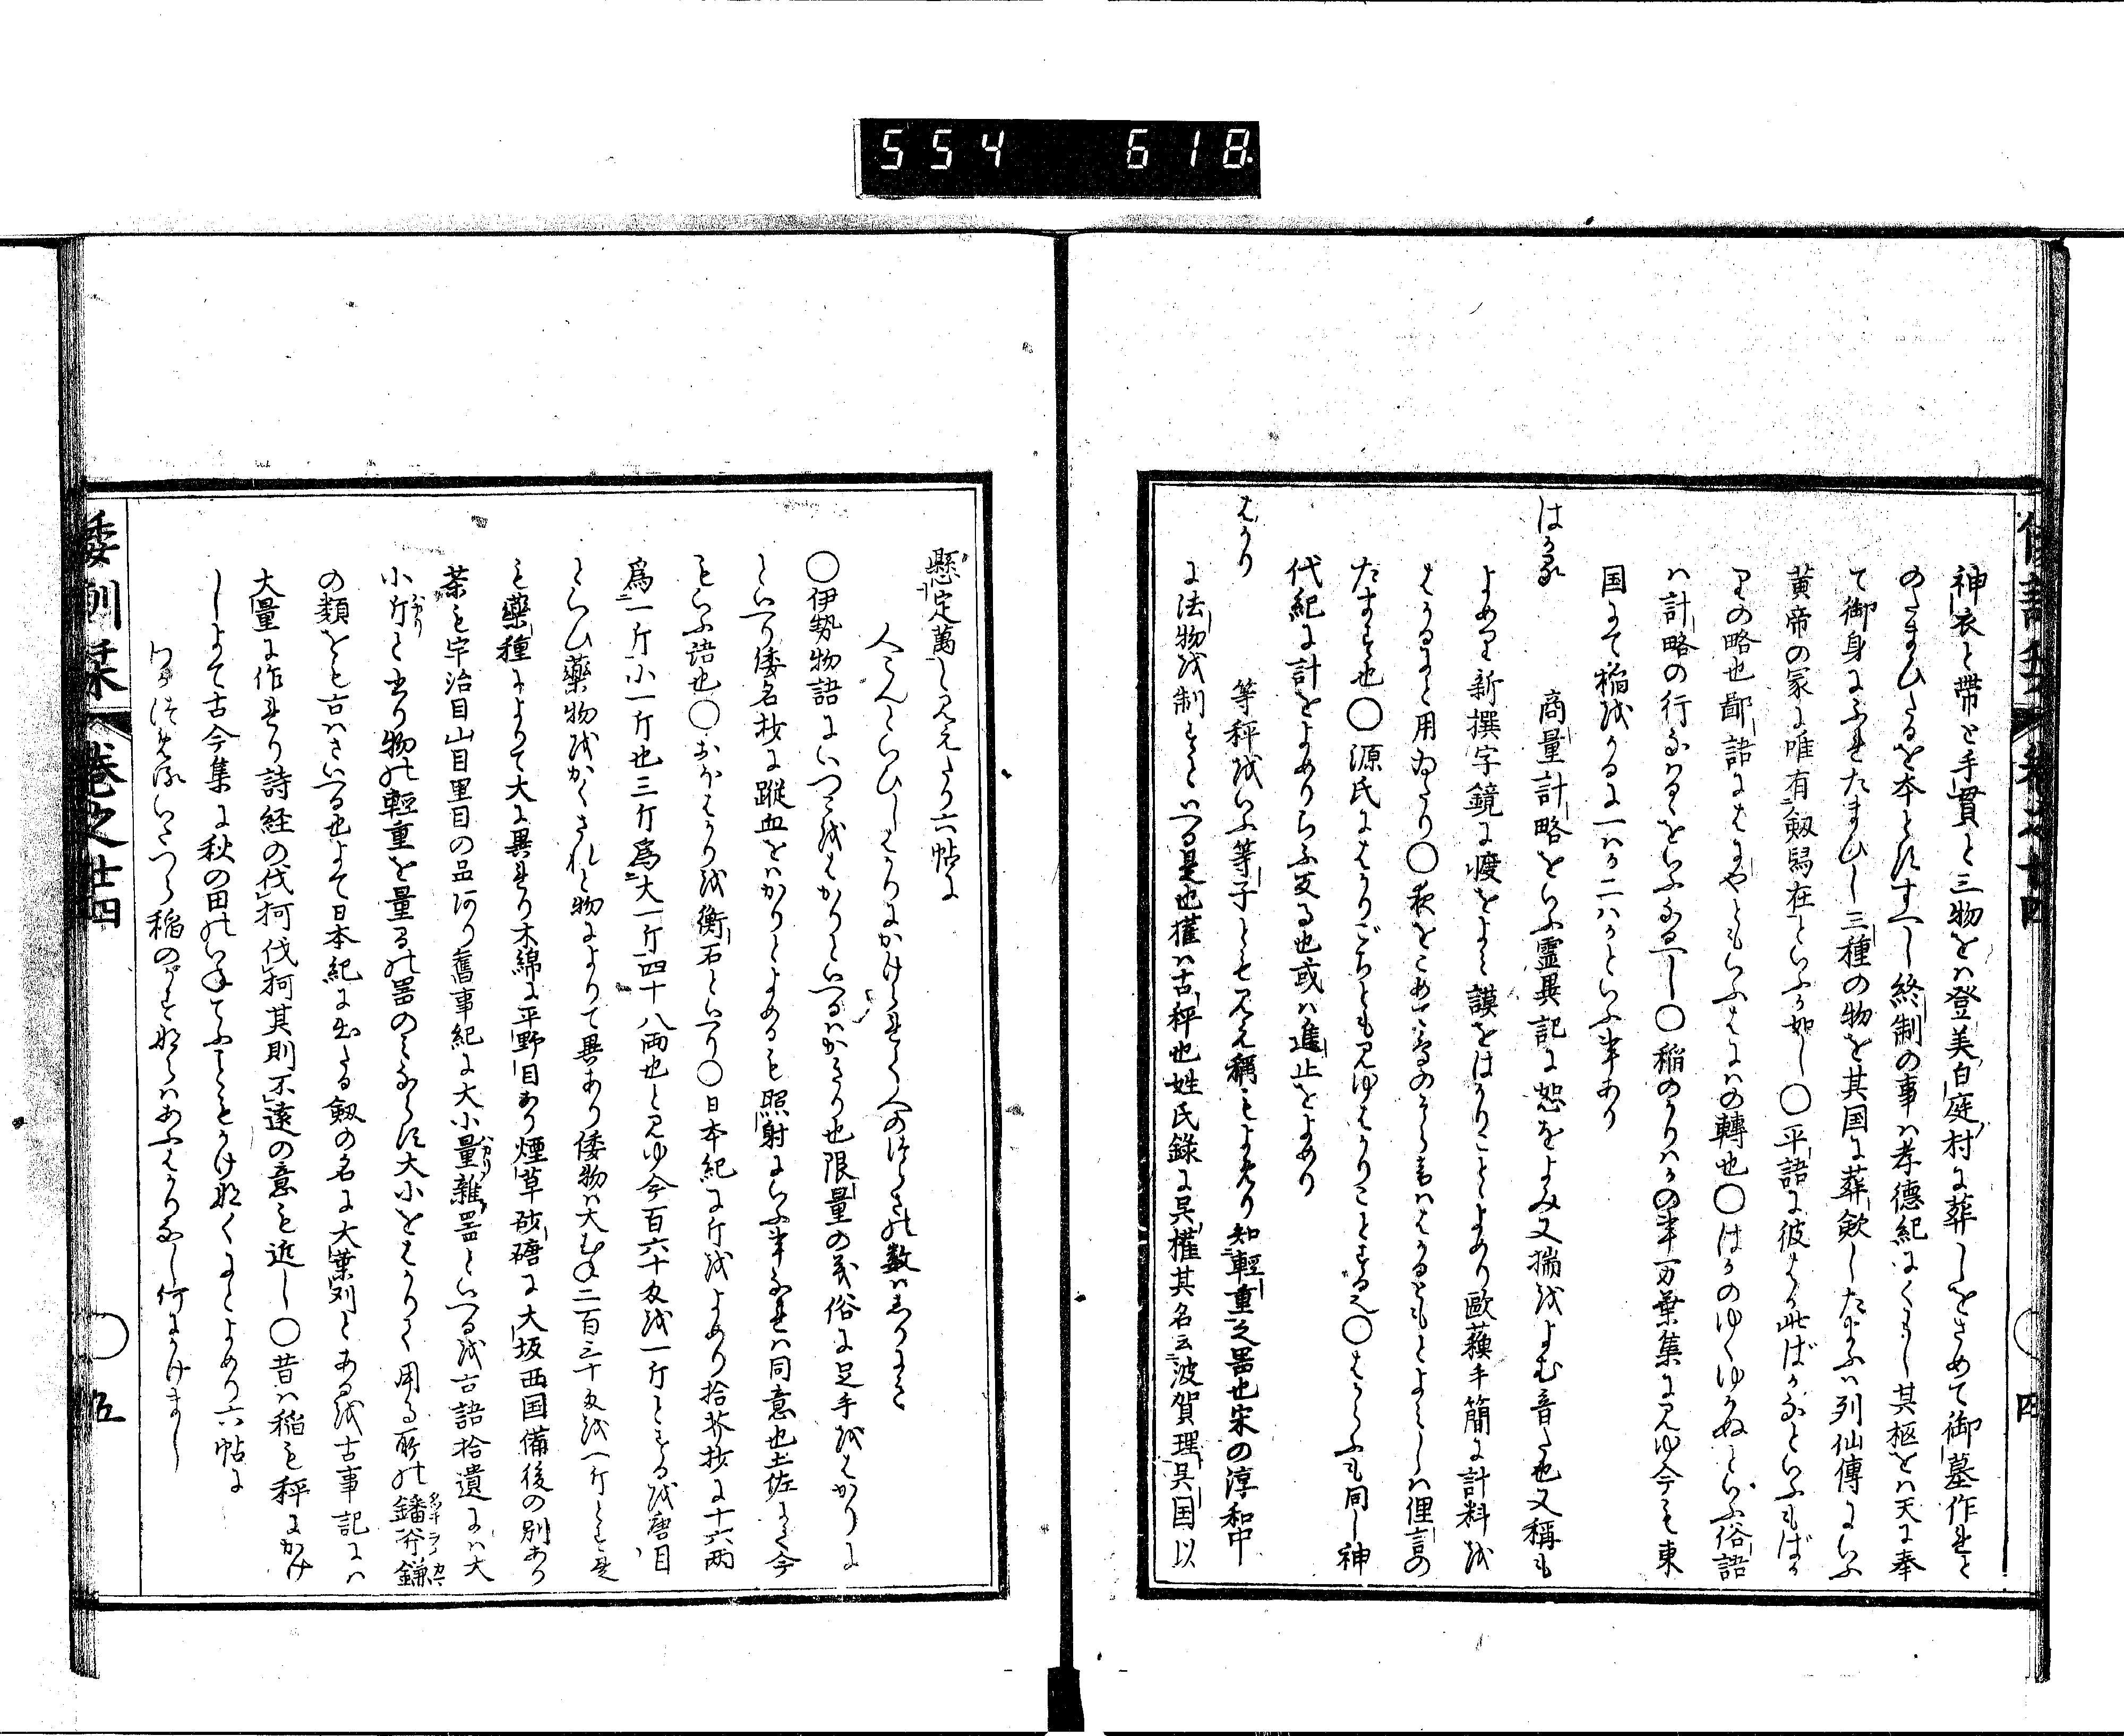 554 618
神衣と帯と手貫と三物をハ登美白庭村に葬しをさめて御墓作れと
のたまひたるを本とにすへし終制の事ハ孝徳紀にくはし其柩をハ天に奉
て御身にふれたまひし三種の物を其国に葬歛したまふハ列仙傳にいふ
黄帝の冢に唯有釼舄在といふか如し〇平語に彼はか此ばかなといふもばか
りの略也鄙語にはにやともいふはにハの轉也〇はかのゆくゆかぬといふ俗語
ハ計略の行なはるゝをいふなるへし〇稲のかりハかの事万葉集に見ゆ今も東
国にて稲をかるに一ハか二ハかといふ事あり
はかる
商量計略をいふ霊異記に恕をよみ又揣をよむ音たも又稱も
よめり新撰字鏡に𢜩をよミ謨をはかりことゝよめり歐蘓手簡に計料を
はかるまと用ゐたり〇夜をこめて鳥のそらねハはかるともとよミしハ俚言の
たます也〇源氏にはかりごちとも見ゆはかりことする也〇はからふも同し神
代紀に計をよめりらふ反る也或ハ進止をよめり
はかり
等秤をいふ等子とも見え稱もよめり知輕重之器也宋の淳和中
に法物を制すといへる是也權ハ古秤也姓氏錄に呉權其名云波賀理呉国以
懸定萬と見えたり六帖に
人こんといひしはかりにかけられて人のつらさの数ハしりにき
〇伊勢物語にいつこをはかりといへるハかきり也限量の義俗に足手をはかりに
といへり倭名抄に蹤血をハかりとよめるも照射にいふ事なれハ同意也土佐にて今
もいふ語也〇おもはかりを衡石といへり〇日本紀に斤をよめり拾芥抄に十六両
爲一斤小一斤也三斤爲大一斤四十八両也と見ゆ今百六十匁を一斤とするを唐目
といひ藥物をかくされと物によりて異あり倭物ハ大むね二百三十匁を一斤とす是
も藥種によりて大に異なり木綿に平野目あり煙草砂糖に大坂西国備後の別あり
茶も宇治目山目里目の品あり舊事紀に大小量雜噐といへるを古語拾遺にハ大
小斤と出り物の輕重を量るの噐のミならす大小をはかりて用る所の鐇斧鎌
の類をも古ハさいへる也よて日本紀に出たる釼の名に大葉刈とあるを古事記にハ
大量に作れり詩経の伐柯伐柯其則不遠の意も近し〇昔ハ稲も秤にかけ
しよて古今集に秋の田のいねてふことをかけなくにとよめり六帖に
稲のかすならハあふはかりなし何にかけまし
倭訓栞 巻之廿四 五
四